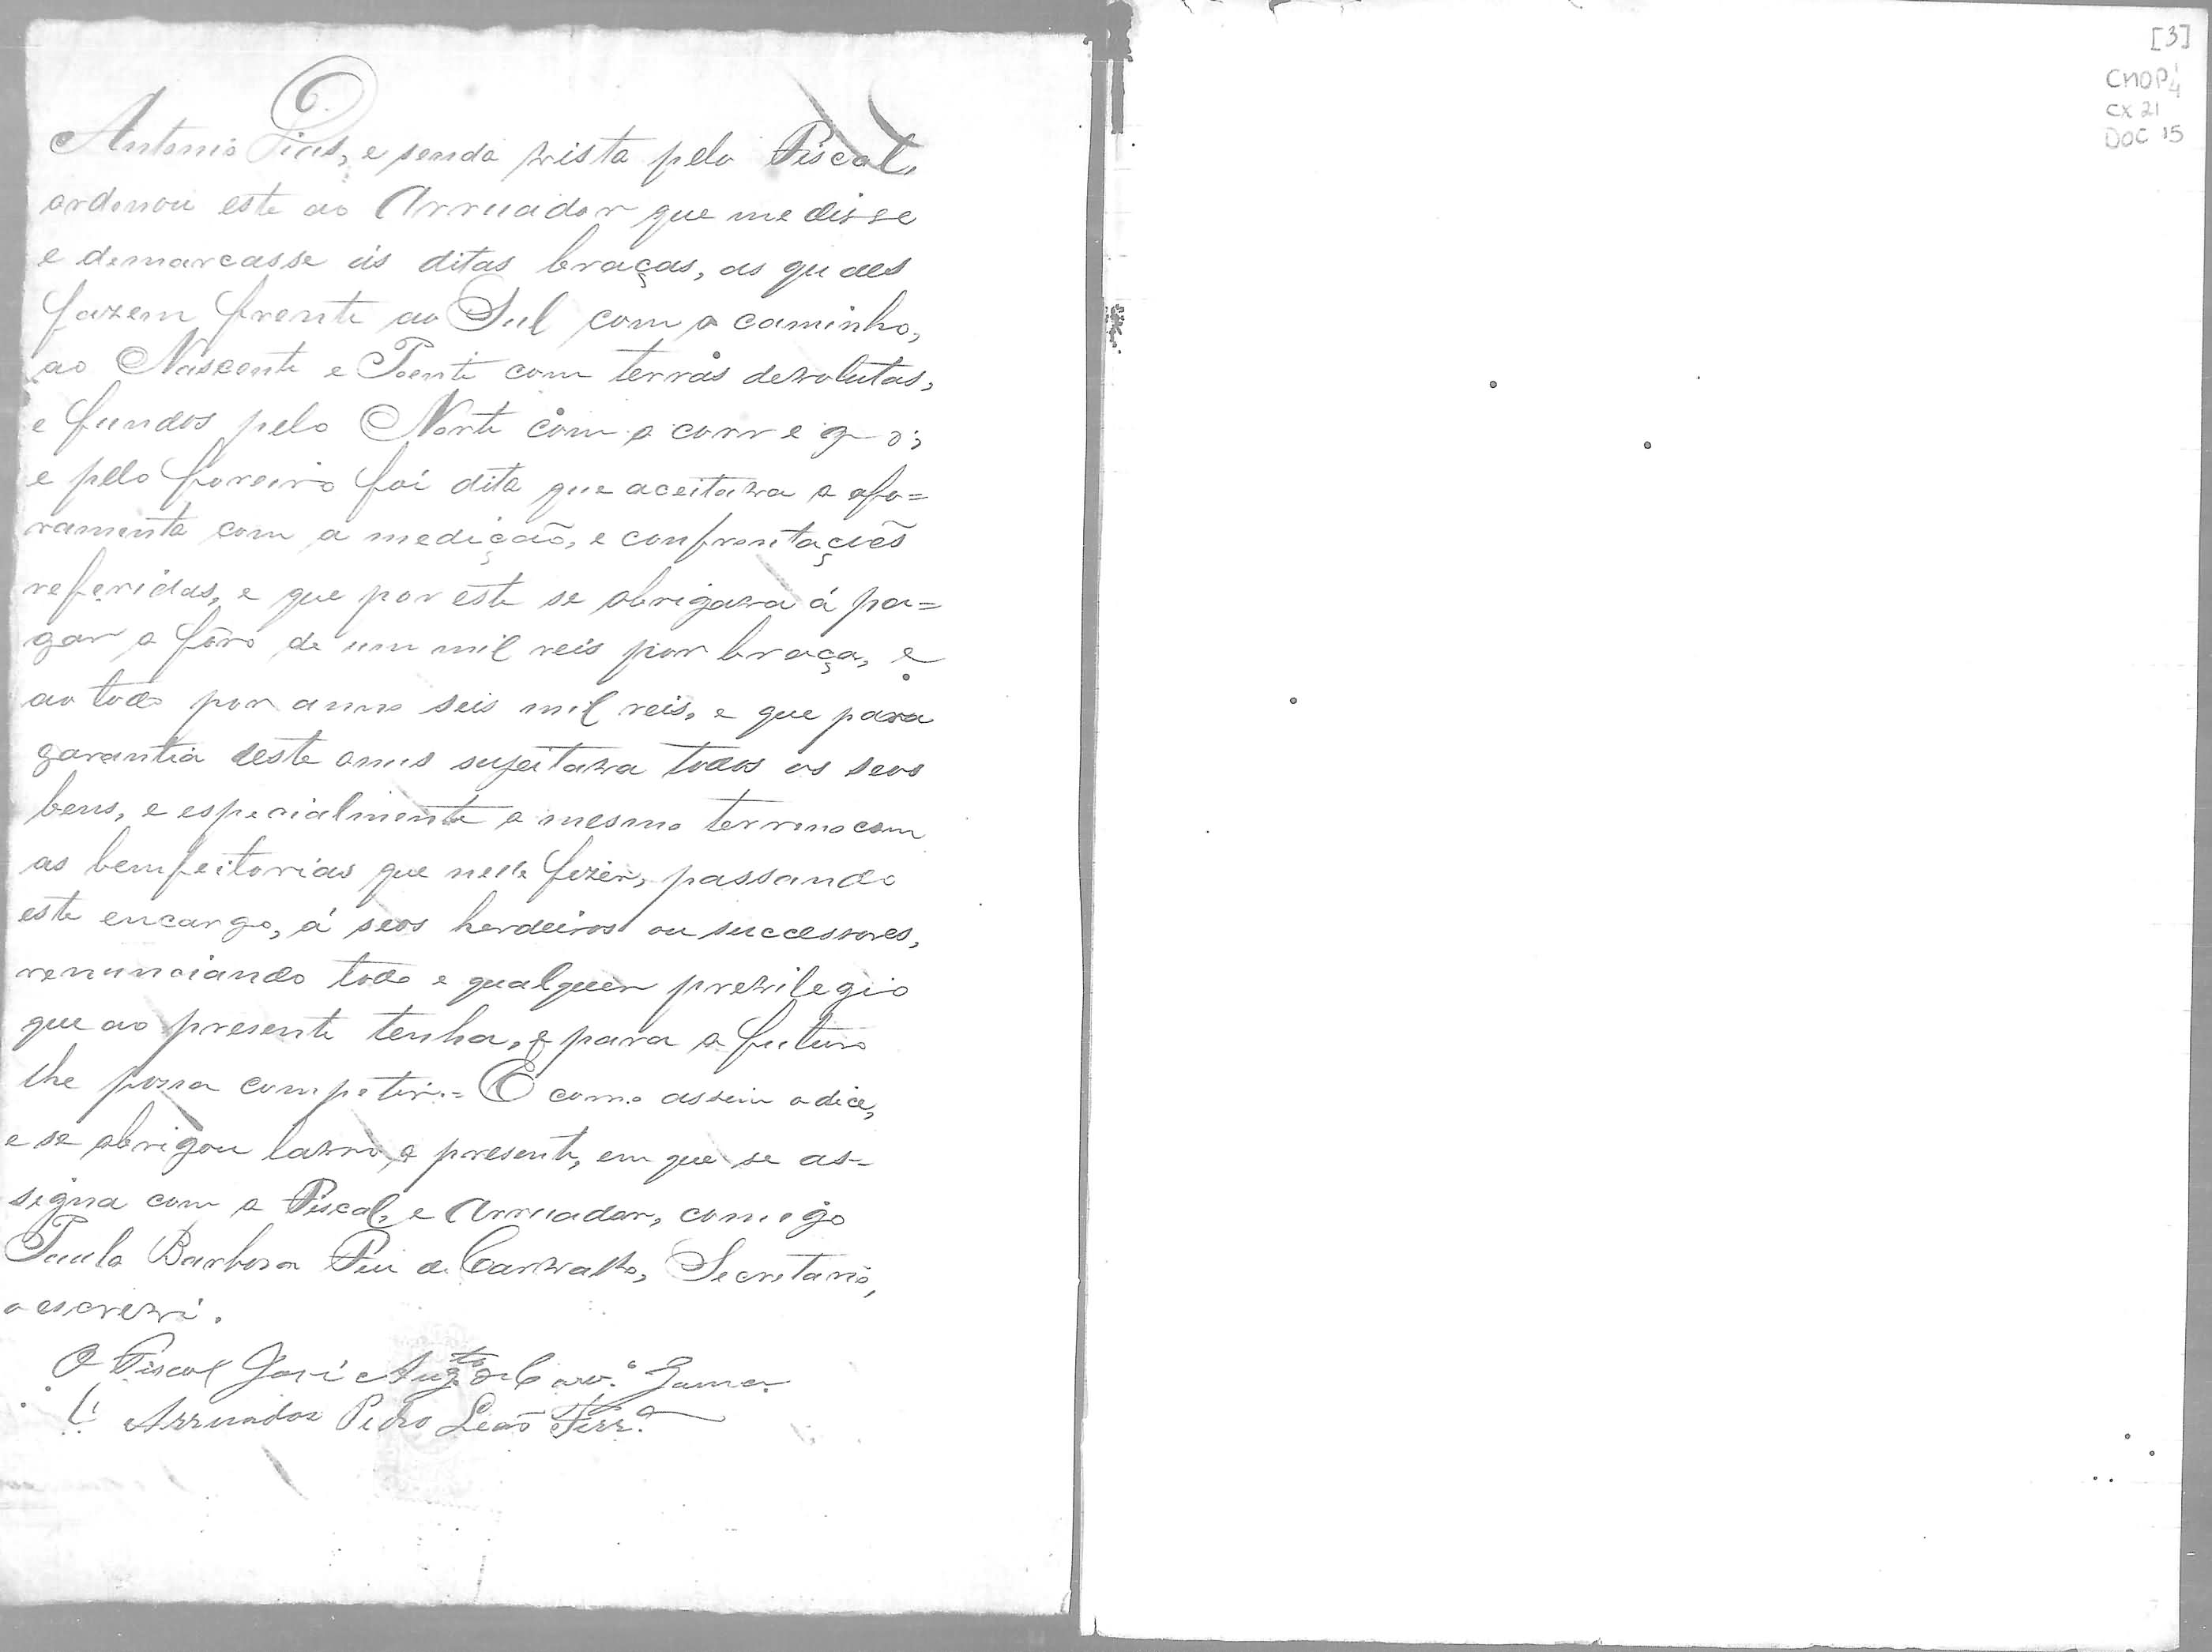 Antonio Dias, e sendo vista pelo Fiscal,
ordenou este ao Arruador que medisse
e demarcasse ás ditas braças, as quaes
fazem frente ao Sul com o caminho,
ao Nascente e Poente com terras devolutas,
e fundos pelo Norte com o corrego;
e pelo foreiro foi dito que aceitava o afo=
ramento com a medição, e confrontações
referidas, e que por este se obrigava á pa=
gar o fôro de um mil reis por braça, e
ao todo por anno seis mil reis, e que para
garantia deste onus sujeitava todos os seos
bens, e especialmente o mesmo terreno com
as bemfeitorias que nelle fizer, passando
este encargo, á seos herdeiros ou successores,
renunciando todo e qualquer previlegio
que ao presente tenha, e para o futuro
lhe possa competir.= E como assim o dice,
e se obrigou lavro o presente, em que se as-
signa com o Fiscal, e Arruador, comigo
Paulo Barbosa de Carvalho, Secretario,
o escrevi.
O Fiscal José Aug.to de Carv.o Gama
O Arruador Pedro Leão Ferr.a
[3]
CMOP
CX 21
DOC 15